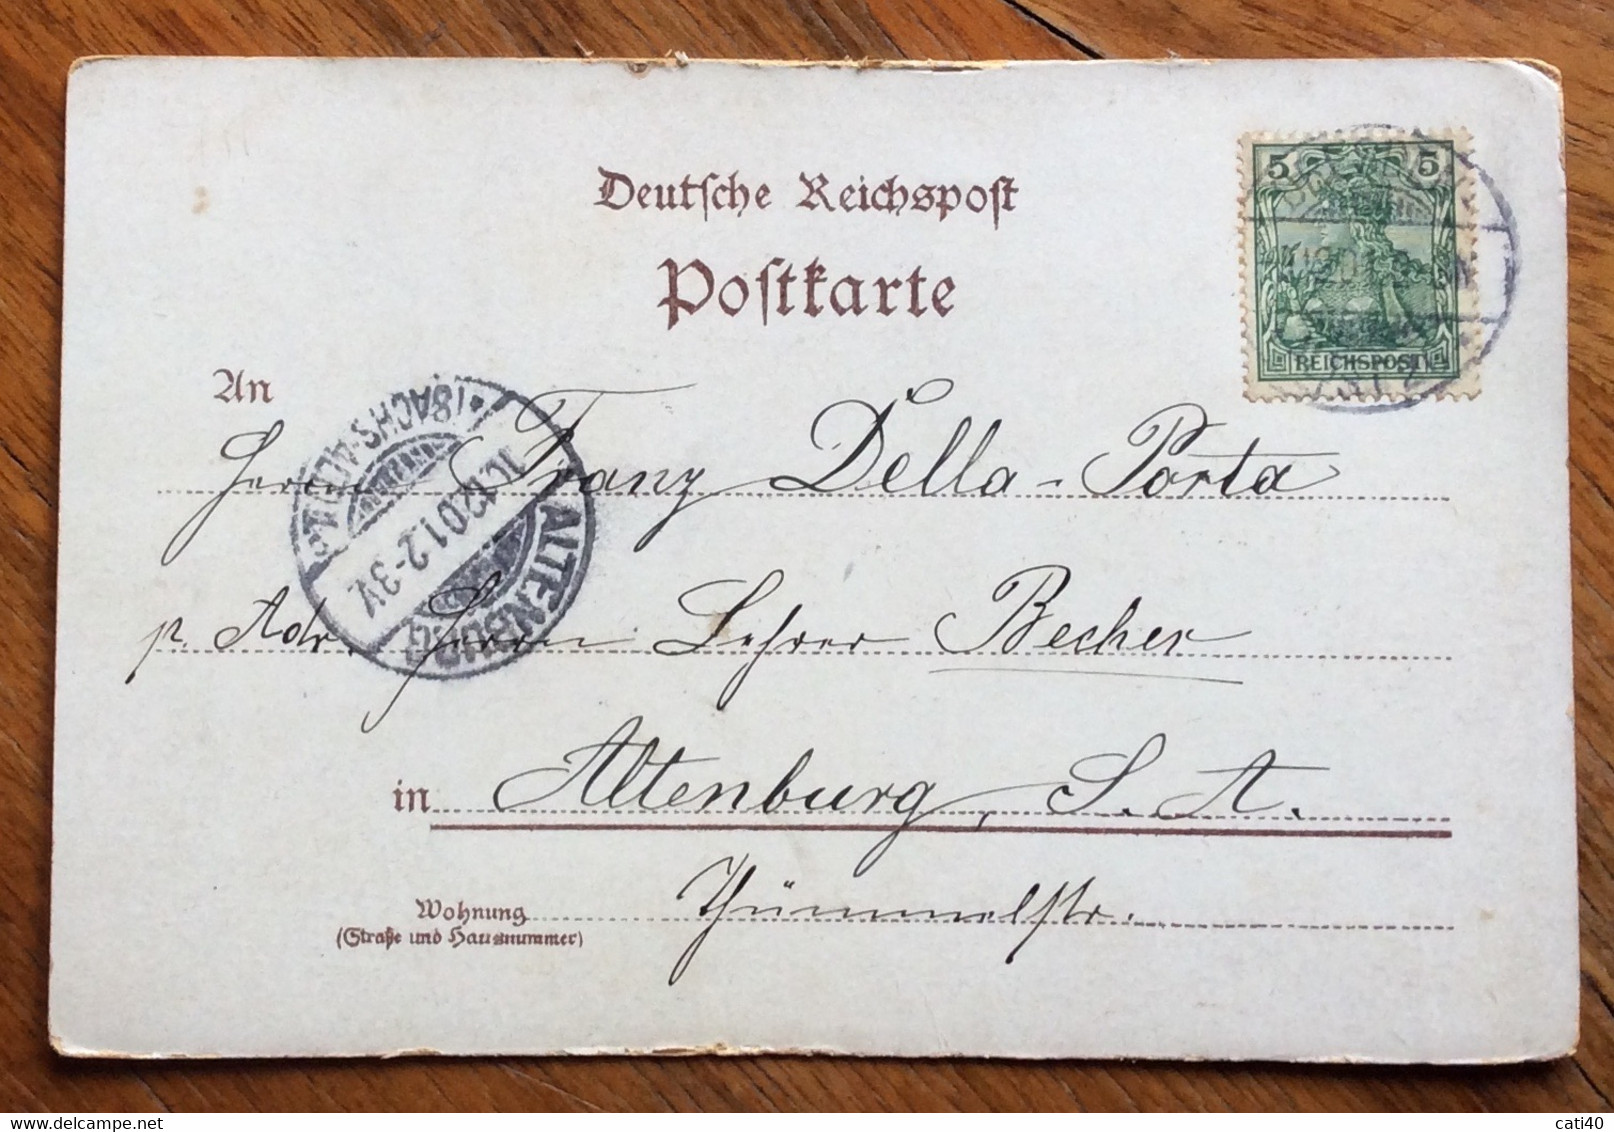 Deutsche Reichspost
Postkarte
5 5
REICHSPOST
An
Herrn Franz Della-Porta
ALTENBURG
(SACHS-ALT.)
12.01.2-3V.
p. Adr. Herrn Lehrer Becher
in Altenburg, S. A.
Wohnung Thümmelstr.
(Straße und Hausnummer)
cati40